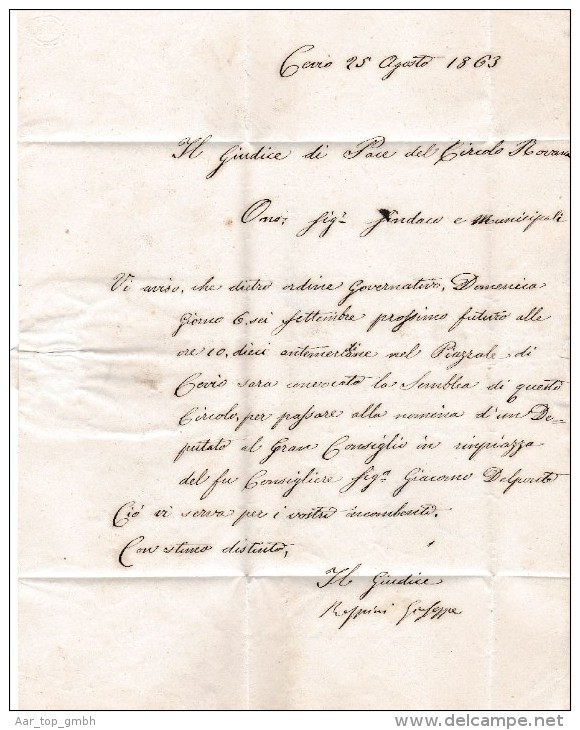 Cevio 25 Agosto 1863
Il Giudice di Pace del Circolo Rovana
Onor. Sigr Sindaco e Municipali
Vi aviso, che dietro ordine Governativo, Domenica
giorno 6. sei Settembre prossimo futuro alle
ore 10, dieci antemeridiane nel Piazzale di
Cevio sara convocato la Semblea di questo
Circolo, per passare alla nomina d'un De-
putato al Gran Consiglio in rinpiazza
del fu Consigliere Sigr Giacomo Delponte
Ciò vi serva per i vostri
Con stima distinta,
Il Giudice
Giuseppe
Aar_top_gmbh
www.delcampe.net